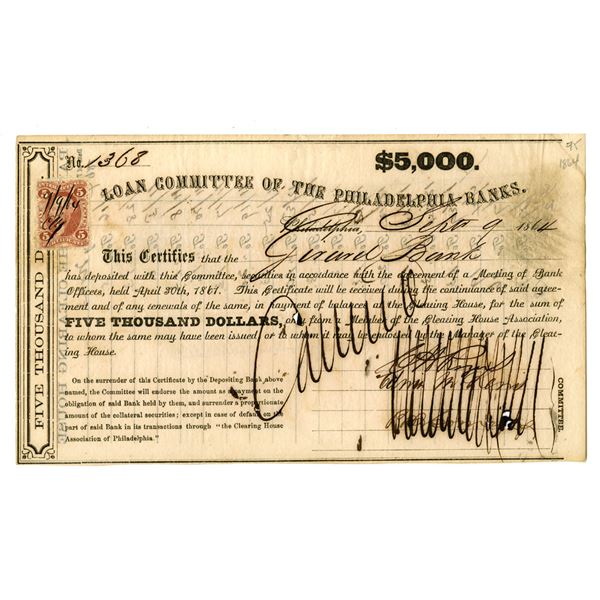 No. 1368
$5,000.
75
1864
LOAN COMMITTEE OF THE PHILADELPHIA BANKS.
Philadelphia, Sept 9 1864
This Certifies that the Girard Bank
has deposited with this Committee, securities in accordance with the agreement of a Meeting of Bank
Officers, held April 30th, 1861. This Certificate will be received during the continuance of said agree-
ment and of any renewals of the same, in payment of balances at the Clearing House, for the sum of
FIVE THOUSAND DOLLARS, only from a Member of the Clearing House Association,
to whom the same may have been issued or to whom it may be endorsed by the Manager of the Clear-
ing House.
On the surrender of this Certificate by the Depositing Bank above
named, the Committee will endorse the amount as a payment on the
obligation of said Bank held by them, and surrender a proportionate
amount of the collateral securities; except in case of default on the
part of said Bank in its transactions through "the Clearing House
Association of Philadelphia."
Cancelled
COMMITTEE.
FIVE THOUSAND D
5 5
9/9/64